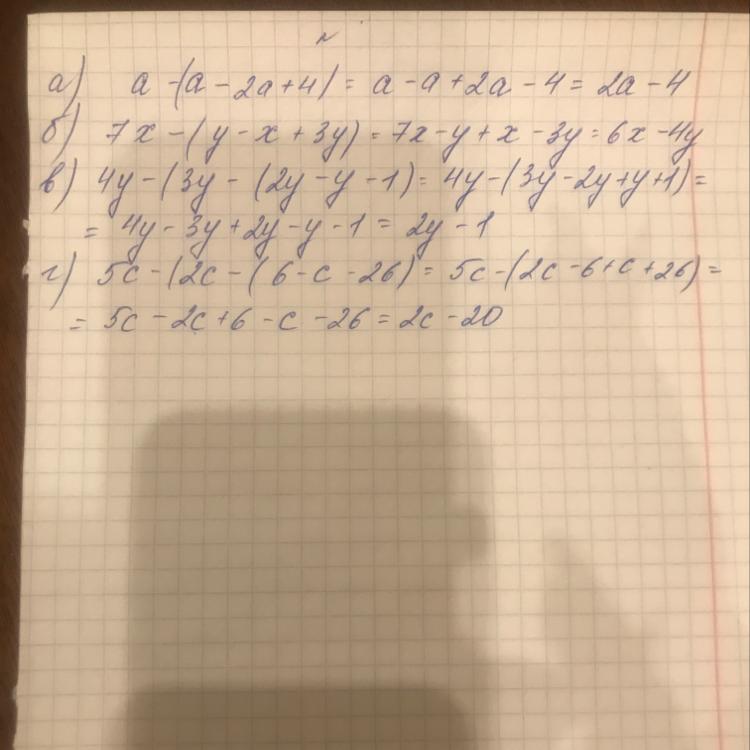 а) a - (a - 2a + 4) = a - a + 2a - 4 = 2a - 4
б) 7x - (y - x + 3y) = 7x - y + x - 3y = 6x - 4y
в) 4y - (3y - (2y - y - 1) = 4y - (3y - 2y + y + 1) =
= 4y - 3y + 2y - y - 1 = 2y - 1
г) 5c - (2c - (6 - c - 26) = 5c - (2c - 6 + c + 26) =
= 5c - 2c + 6 - c - 26 = 2c - 20